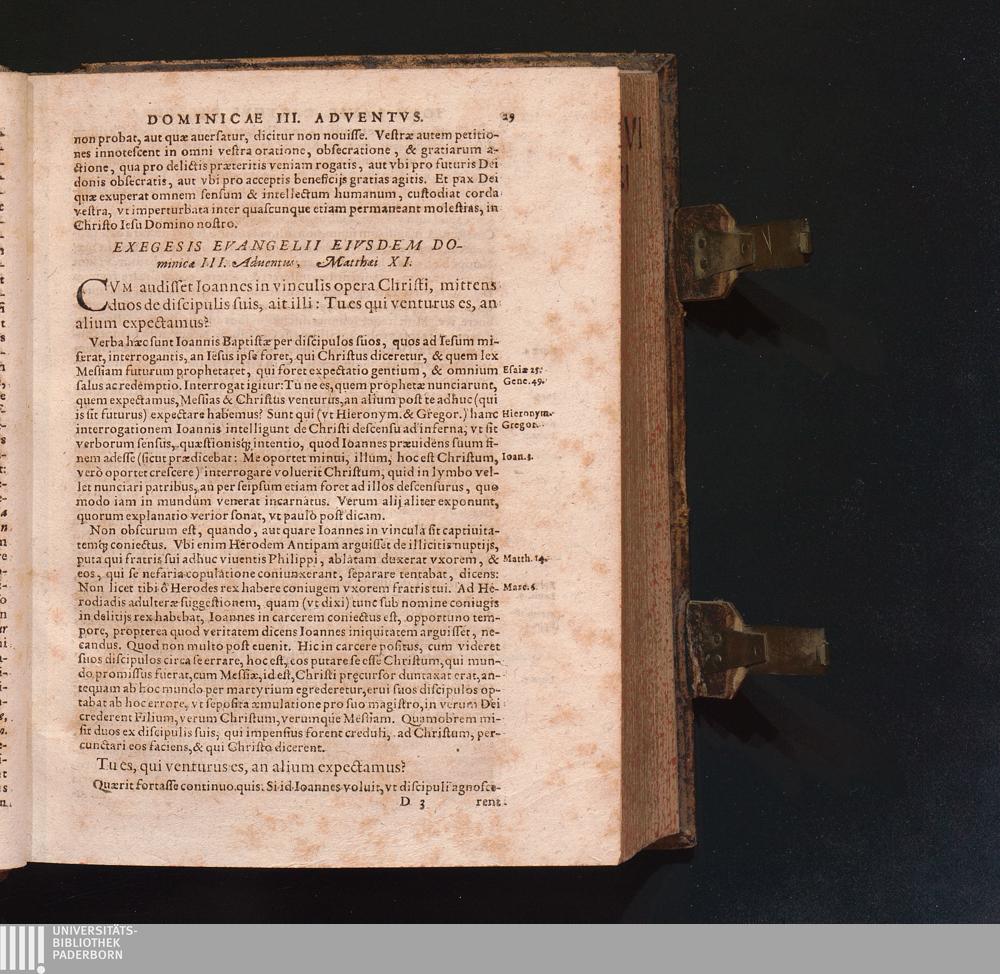 DOMINICAE III. ADVENTVS. 29
non probat, aut quæ auersatur, dicitur non nouisse. Vestræ autem petitio-
nes innotescent in omni vestra oratione, obsecratione, & gratiarum a-
ctione, qua pro delictis præteritis veniam rogatis, aut vbi pro futuris Dei
donis obsecratis, aut vbi pro acceptis beneficijs gratias agitis. Et pax Dei
quæ exuperat omnem sensum & intellectum humanum, custodiat corda
vestra, vt imperturbata inter quascunque etiam permaneant molestias, in
Christo Iesu Domino nostro.
EXEGESIS EVANGELII EIVSDEM DO-
minicæ III. Aduentus, Matthæi XI.
CVM audisset Ioannes in vinculis opera Christi, mittens
duos de discipulis suis, ait illi: Tu es qui venturus es, an
alium expectamus?
Verba hæc sunt Ioannis Baptistæ per discipulos suos, quos ad Iesum mi-
serat, interrogantis, an Iesus ipse foret, qui Christus diceretur, & quem lex
Messiam futurum prophetaret, qui foret expectatio gentium, & omnium Esaiæ 25.
salus ac redemptio. Interrogat igitur: Tu ne es, quem prophetæ nunciarunt, Gene. 49.
quem expectamus, Messias & Christus venturus, an alium post te adhuc (qui
is sit futurus) expectare habemus? Sunt qui (vt Hieronym. & Gregor.) hanc Hieronym.
interrogationem Ioannis intelligunt de Christi descensu ad inferna, vt sit Gregor.
verborum sensus, quæstionisq́; intentio, quod Ioannes præuidens suum fi-
nem adesse (sicut prædicebat: Me oportet minui, illum, hoc est Christum, Ioan. 3.
verò oportet crescere) interrogare voluerit Christum, quid in lymbo vel-
let nunciari patribus, an per seipsum etiam foret ad illos descensurus, quo
modo iam in mundum venerat incarnatus. Verum alij aliter exponunt,
quorum explanatio verior sonat, vt paulò post dicam.
Non obscurum est, quando, aut quare Ioannes in vincula sit captiuita-
temq́; coniectus. Vbi enim Herodem Antipam arguisset de illicitis nuptijs,
puta qui fratris sui adhuc viuentis Philippi, ablatam duxerat vxorem, & Matth. 14.
eos, qui se nefaria copulatione coniunxerant, separare tentabat, dicens:
Non licet tibi ô Herodes rex habere coniugem vxorem fratris tui. Ad He- Marc. 6.
rodiadis adulteræ suggestionem, quam (vt dixi) tunc sub nomine coniugis
in delitijs rex habebat, Ioannes in carcerem coniectus est, opportuno tem-
pore, propterea quod veritatem dicens Ioannes iniquitatem arguisset, ne-
candus. Quod non multo post euenit. Hic in carcere positus, cum videret
suos discipulos circa se errare, hoc est, eos putare se esse Christum, qui mun-
do promissus fuerat, cum Messiæ, id est, Christi precursor duntaxat erat, an-
tequam ab hoc mundo per martyrium egrederetur, erui suos discipulos op-
tabat ab hoc errore, vt seposita æmulatione pro suo magistro, in verum Dei
crederent Filium, verum Christum, verumque Messiam. Quamobrem mi-
sit duos ex discipulis suis, qui impensius forent creduli, ad Christum, per-
cunctari eos faciens, & qui Christo dicerent.
Tu es, qui venturus es, an alium expectamus?
Quærit fortasse continuo quis. Si id Ioannes voluit, vt discipuli agnosce-
D 3 rent
UNIVERSITÄTS-
BIBLIOTHEK
PADERBORN